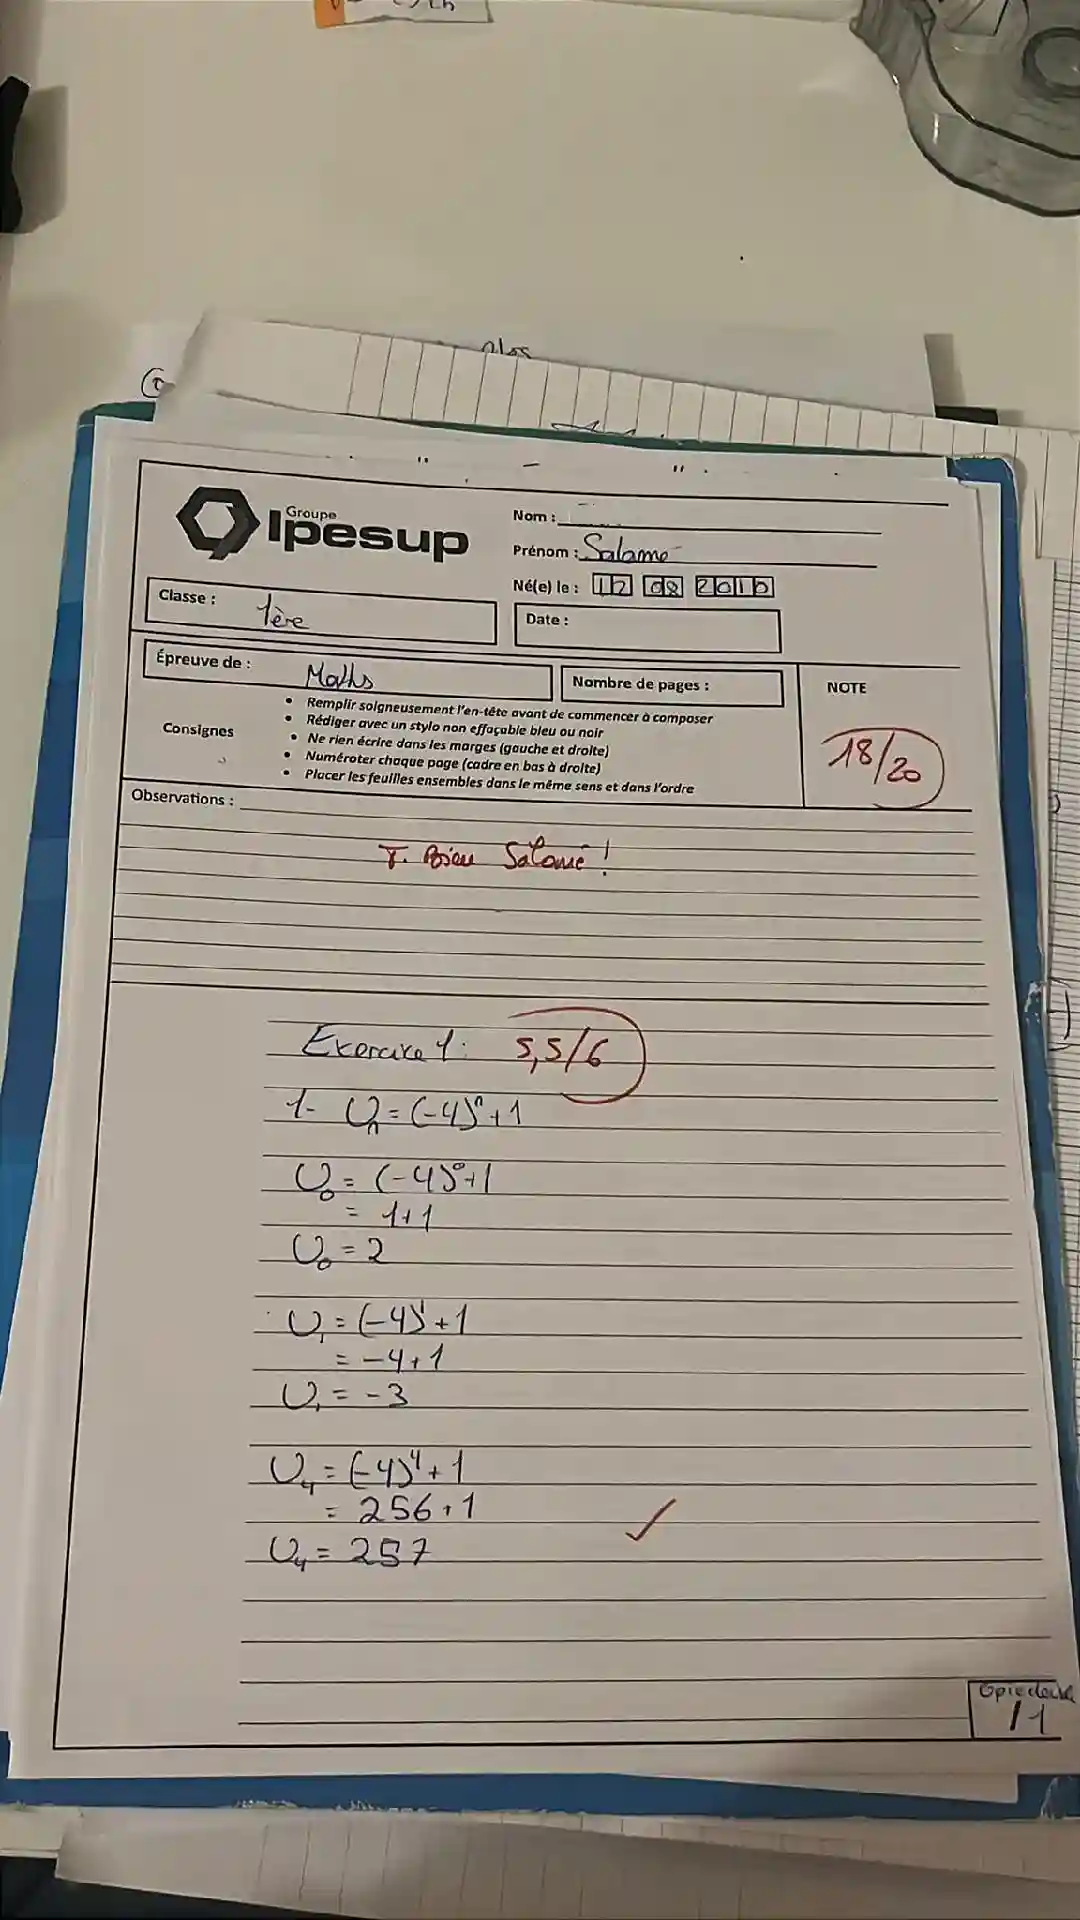 Groupe
Ipesup
Nom :
Prénom : Salomé
Né(e) le : 12 08 2010
Classe : 1ère
Date :
Épreuve de : Maths
Nombre de pages :
NOTE
18/20
Consignes
• Remplir soigneusement l'en-tête avant de commencer à composer
• Rédiger avec un stylo non effaçable bleu ou noir
• Ne rien écrire dans les marges (gauche et droite)
• Numéroter chaque page (cadre en bas à droite)
• Placer les feuilles ensembles dans le même sens et dans l'ordre
Observations :
T. Bien Salomé !
Exercice 1 : 5,5/6
1- Uₙ = (-4)ⁿ + 1
U₀ = (-4)⁰ + 1
= 1 + 1
U₀ = 2
U₁ = (-4)¹ + 1
= -4 + 1
U₁ = -3
U₄ = (-4)⁴ + 1
= 256 + 1
U₄ = 257
/1